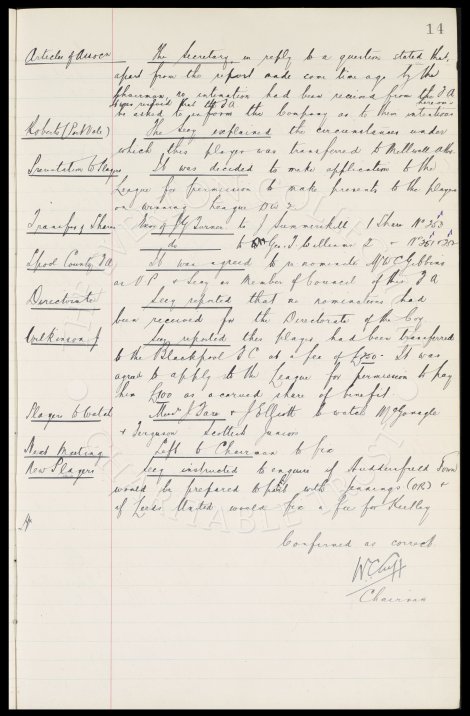 14
Articles of Assocn The Secretary in reply to a question stated that,
apart from the report made some time ago by the
Chairman, no intimation had been received from the FA
It was resolved that the FA hereon
be asked to inform the Company as to their intentions
Roberts (Port Vale) The Secy explained the circumstances under
which this player was transferred to Millwall Ath.
Presentation to Players It was decided to make application to the
League for permission to make presents to the players
on winning League Div 2
Transfer of Shares Mrs J G Turner to J Summerskill 1 Share No 363
do to Geo. T. Williams 2 " No 361 & 362
Lpool County FA It was agreed to renominate Mr W C Gibbins
as VP & Secy as Member of Council of this FA
Directorate Secy reported that no nominations had
been received for the Directorate of the Coy
Wilkinson J Secy reported this player had been transferred
to the Blackpool FC at a fee of £750. It was
agreed to apply to the League for permission to pay
him £100 as accrued share of benefit.
Players to Watch Messrs J Fare & J Elliott to watch McGonagle
& Ferguson Scottish Juniors
Next Meeting Left to Chairman to fix
New Players Secy instructed to enquire if Huddersfield Town
would be prepared to part with Jennings (OR) &
if Leeds United would fix a fee for Keetley
Confirmed as correct
W C Cuff
Chairman